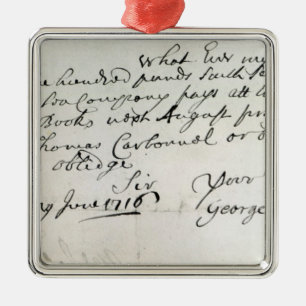 What Ever my
e hundred pounds South Se
Company pays att
Books next August pr
homas Carbonnel or o
obleidge
Sir Your
9 June 1716 George